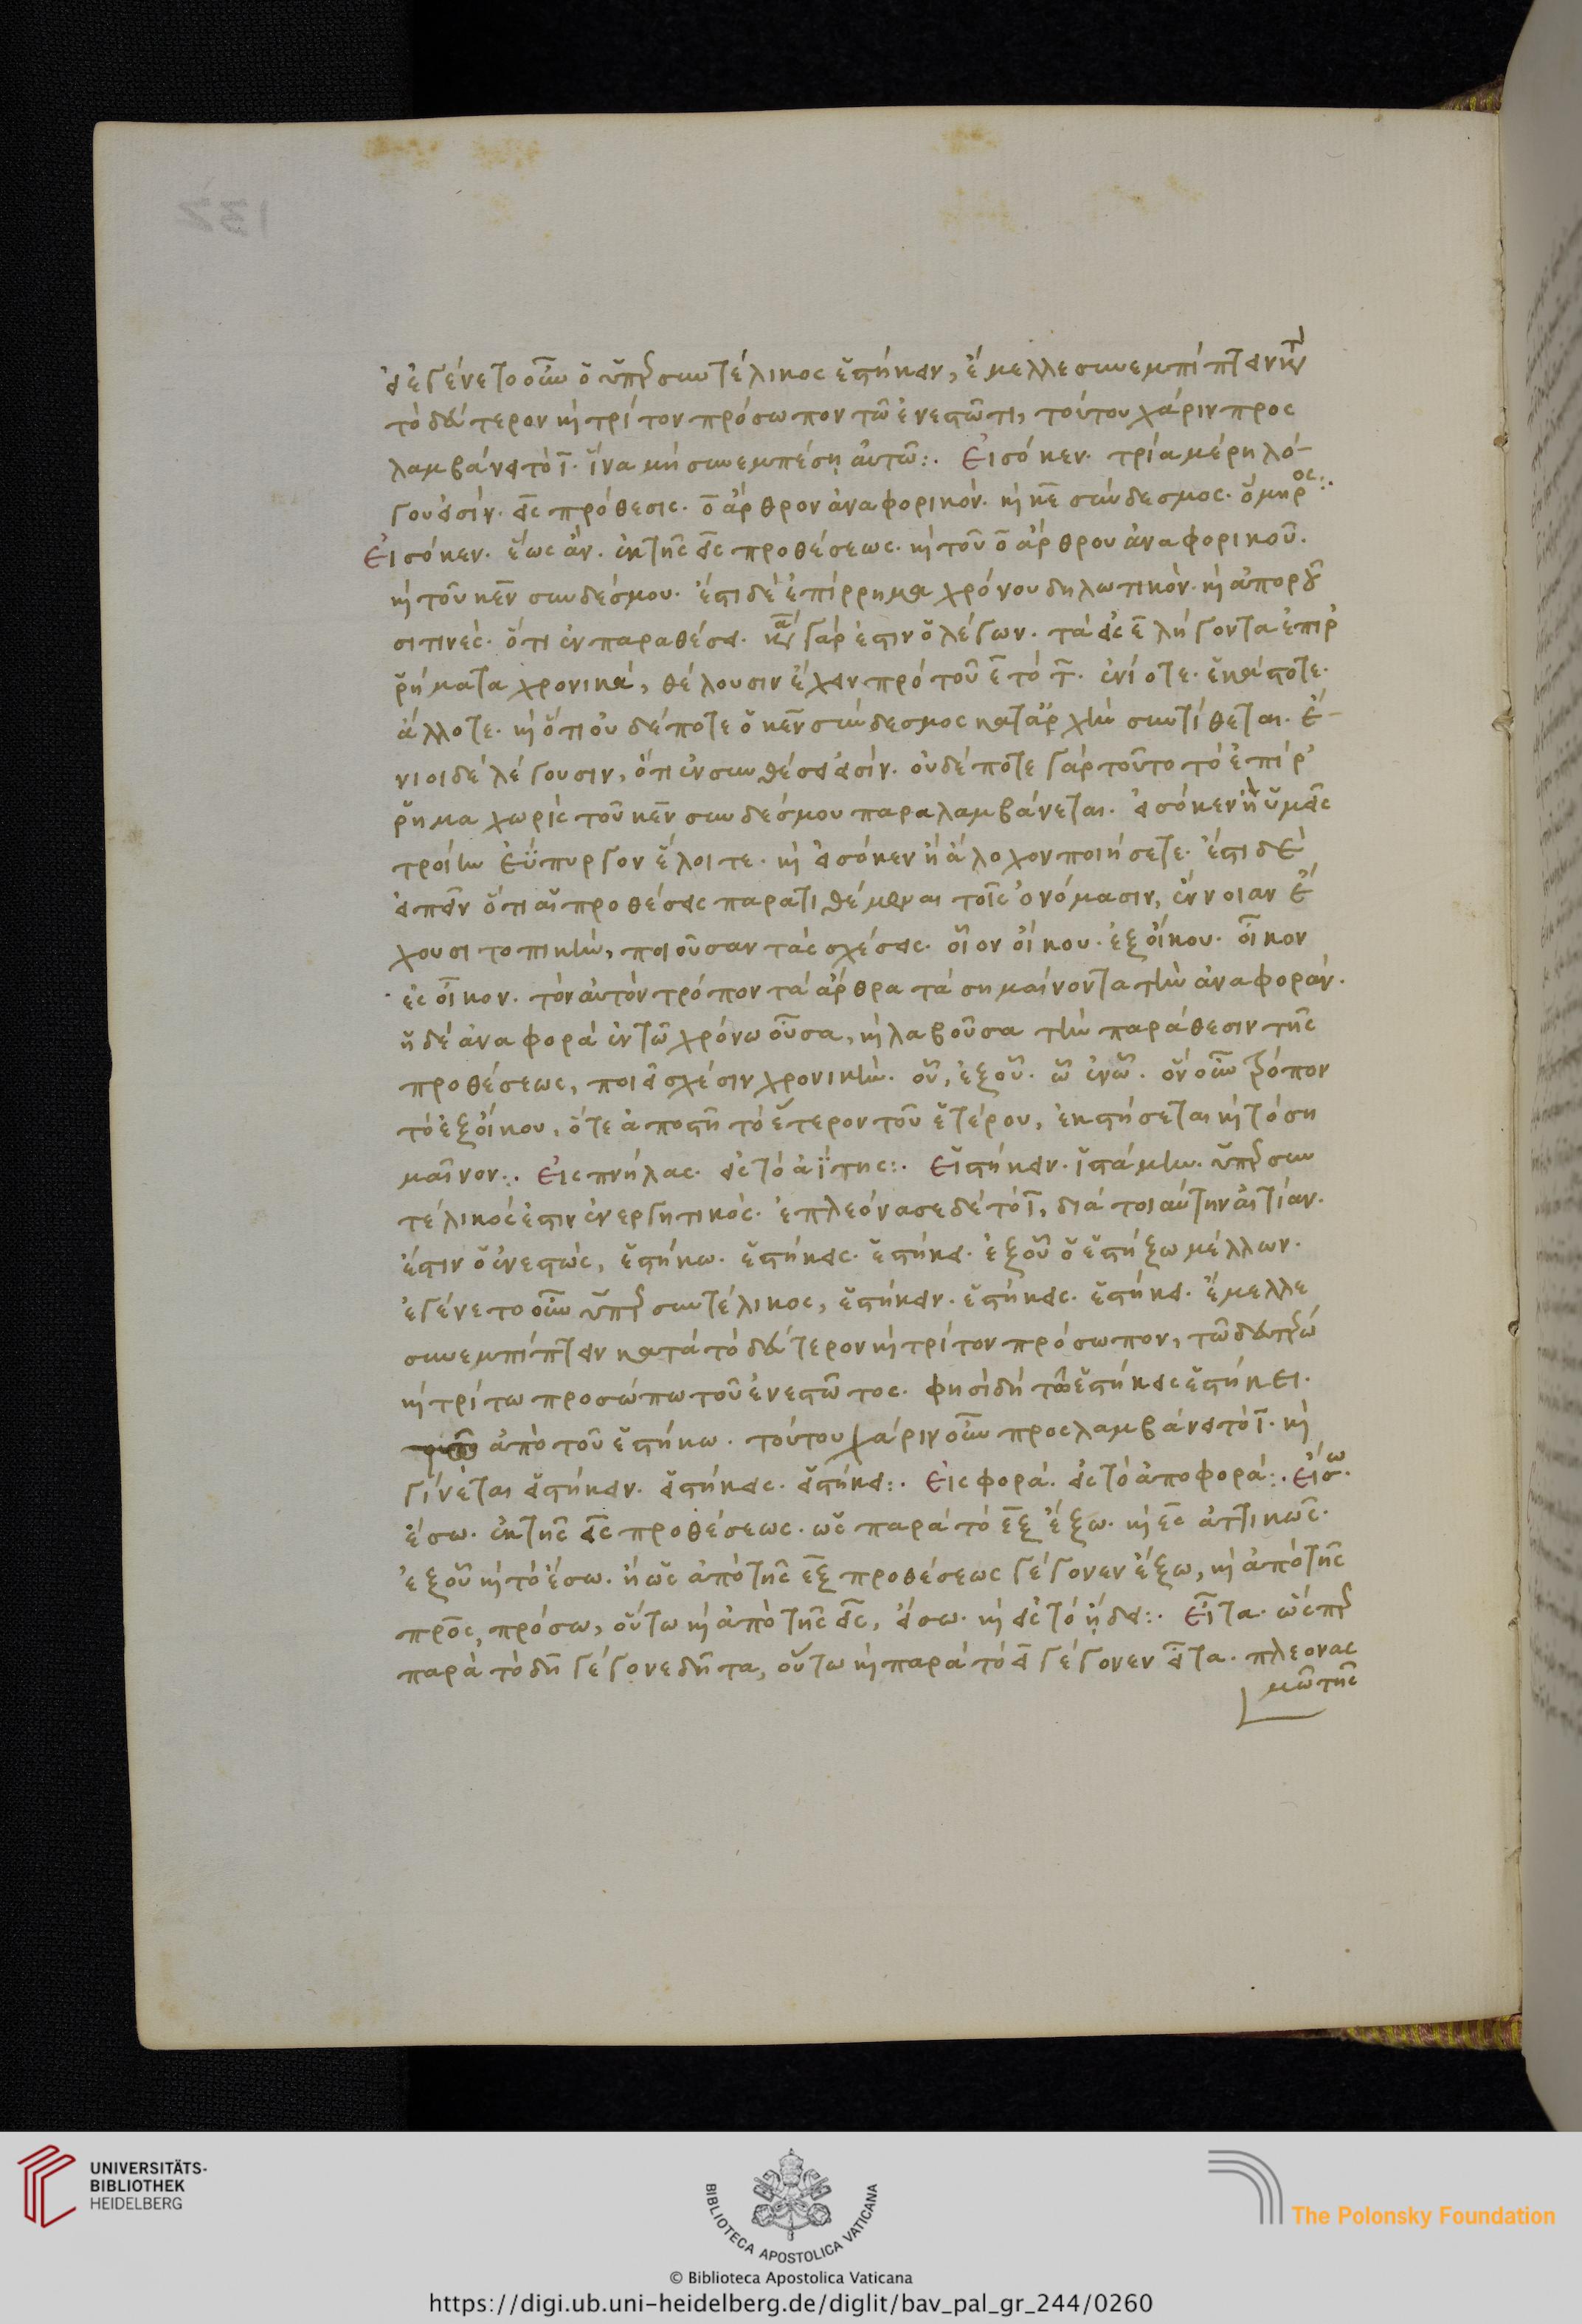 εἰ ἐγένετο οὖν ὁ ὑπερσυντέλικος ἑστήκειν, ἔμελλε συνεμπίπτειν κατὰ
τὸ δεύτερον καὶ τρίτον πρόσωπον τῶ ἐνεστῶτι, τούτου χάριν προς
λαμβάνει τὸ ῑ. ἵνα μὴ συνεμπέσῃ αὐτῶ:. Εἰσόκεν. τρία μέρη λό-
γου εἰσίν. εἰς πρόθεσις. ο ἄρθρον ἀναφορικόν. καὶ κε σύνδεσμος. ὅμηρος:.
Εἰσόκεν. ἕως ἄν. ἐκ τῆς εἰς προθέσεως. καὶ τοῦ ο ἄρθρου ἀναφορικοῦ.
καὶ τοῦ κεν συνδέσμου. ἔστι δὲ ἐπίρρημα χρόνου δηλωτικόν. καὶ ἀποροῦ
σι τινές. ὅτι ἐν παραθέσει. γάρ ἐστιν ὁ λέγων. τὰ εἰς ε λήγοντα ἐπιρ
ῥήματα χρονικά, θέλουσιν ἔχειν πρὸ τοῦ ε τὸ τ. ἐνίοτε. ἑκάστοτε.
ἄλλοτε. καὶ ὅτι οὐδέποτε ὁ κεν σύνδεσμος κατἀρχὴν συντίθεται. ἔ-
νιοι δὲ λέγουσιν, ὅτι ἐν συνθέσει εἰσίν. οὐδέποτε γὰρ τοῦτο τὸ ἐπίρ
ρημα χωρὶς τοῦ κεν συνδέσμου παραλαμβάνεται. εἰσόκεν ἢ ὑμεῖς
τροίην εὔπυργον ἕλοιτε. καὶ εἰσόκεν ἢ ἄλοχον ποιήσετε. ἔστι δὲ
εἰπεῖν ὅτι αἱ προθέσεις παρατιθέμεναι τοῖς ὀνόμασιν, ἔννοιαν ἔ
χουσι τοπικὴν, ποιοῦσαν τὰς σχέσεις. οἷον οἴκου. ἐξοίκου. οἶκον
ἐς οἶκον. τὸν αὐτὸν τρόπον τὰ ἄρθρα τὰ σημαίνοντα τὴν ἀναφοράν.
ἡ δὲ ἀναφορὰ ἐν τῶ χρόνω οὖσα, καὶ λαβοῦσα τὴν παράθεσιν τῆς
προθέσεως, ποιεῖ σχέσιν χρονικὴν. οὗ, ἐξοῦ. ὧ ἐνῶ. ὃν οὖν τρόπον
τὸ ἐξοίκου, ὅτε ἀποστῆ τὸ ἕτερον τοῦ ἑτέρου, ἐκστήσεται καὶ τὸ ση
μαῖνον:. Εἰσπνήλας. εἰς τὸ ἀΐτης:. Εἱστήκειν. ἱστάμην. ὑπερσυν
τέλικός ἐστιν ἐνεργητικός. ἐπλεόνασε δὲ τὸ ῑ, διὰ τοιαύτην αἰτίαν.
ἔστιν ὁ ἐνεστώς, ἑστήκω. ἑστήκεις. ἑστήκει. ἐξοῦ ὁ ἑστήξω μέλλων.
ἐγένετο οὖν ὑπερσυντέλικος, ἑστήκειν. ἑστήκεις. ἑστήκει. ἔμελλε
συνεμπίπτειν κατὰ τὸ δεύτερον καὶ τρίτον πρόσωπον, τῶ δευτέρω
καὶ τρίτω προσώπω τοῦ ἐνεστῶτος. φησὶ δὴ τῶ ἑστήκεις ἑστήκει.
ἀπὸ τοῦ ἑστήκω. τούτου χάριν οὖν προσλαμβάνει τὸ ῑ. καὶ
γίνεται εἱστήκειν. εἱστήκεις. εἱστήκει:. Εἰσφορά. εἰς τὸ ἀποφορά:. Εἴσω.
ἔσω. ἐκ τῆς εἰς προθέσεως. ὡς παρὰ τὸ ἐξ ἔξω. καὶ ἐς ἀττικῶς.
ἐξοῦ καὶ τὸ ἔσω. ἢ ὡς ἀπὸ τῆς ἐξ προθέσεως γέγονεν ἔξω, καὶ ἀπὸ τῆς
πρὸς, πρόσω, οὕτω καὶ ἀπὸ τῆς εἰς, εἴσω. καὶ εἰς τὸ ᾔδει:. Εἶτα. ὥσπερ
παρὰ τὸ δὴ γέγονε δῆτα, οὕτω καὶ παρὰ τὸ εἰ γέγονεν εἶτα. πλεονας
μῶ τῆς
132
UNIVERSITÄTS-
BIBLIOTHEK
HEIDELBERG
BIBLIOTECA APOSTOLICA VATICANA
The Polonsky Foundation
© Biblioteca Apostolica Vaticana
https://digi.ub.uni-heidelberg.de/diglit/bav_pal_gr_244/0260